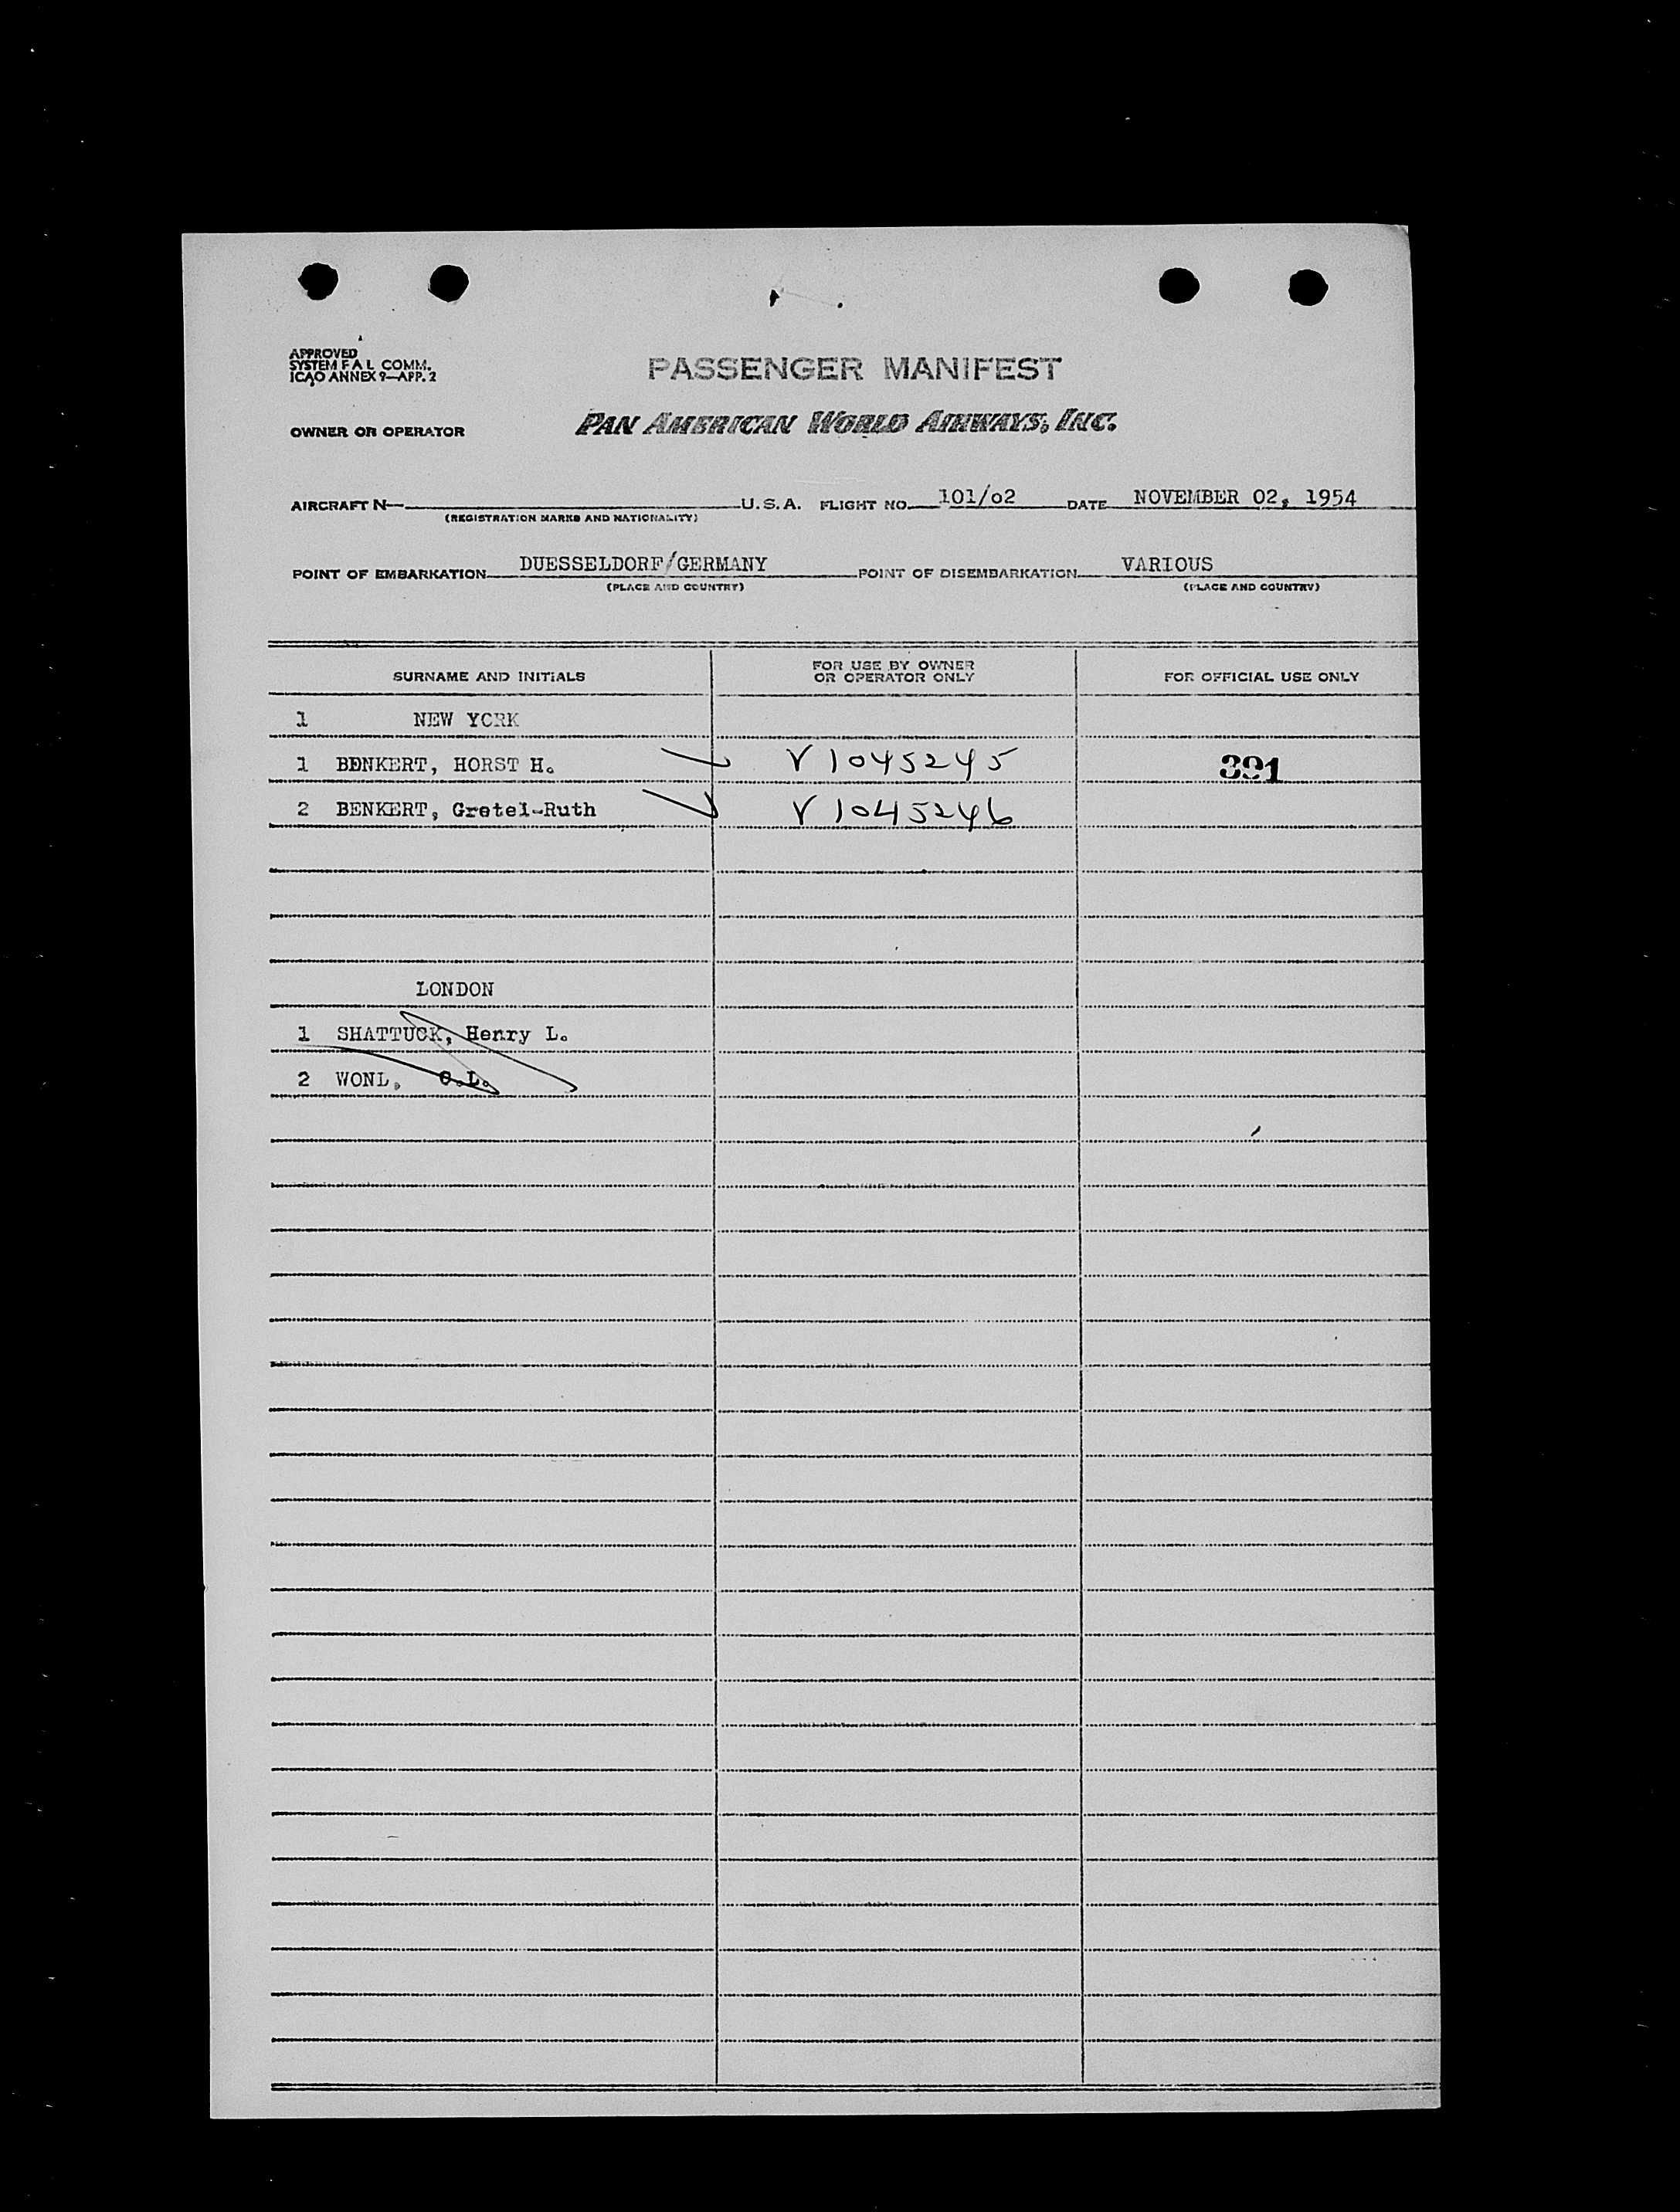 APPROVED
SYSTEM F A L COMM.
ICAO ANNEX 9—APP. 2
PASSENGER MANIFEST
OWNER OR OPERATOR
PAN AMERICAN WORLD AIRWAYS, INC.
AIRCRAFT N— U.S.A. FLIGHT NO. 101/o2 DATE NOVEMBER 02, 1954
(REGISTRATION MARKS AND NATIONALITY)
POINT OF EMBARKATION DUESSELDORF/GERMANY POINT OF DISEMBARKATION VARIOUS
(PLACE AND COUNTRY) (PLACE AND COUNTRY)
SURNAME AND INITIALS FOR USE BY OWNER OR OPERATOR ONLY FOR OFFICIAL USE ONLY
1 NEW YORK
1 BENKERT, HORST H. V 1045245 391
2 BENKERT, Gretel-Ruth V 1045246
LONDON
1 SHATTUCK, Henry L.
2 WONL, O.L.